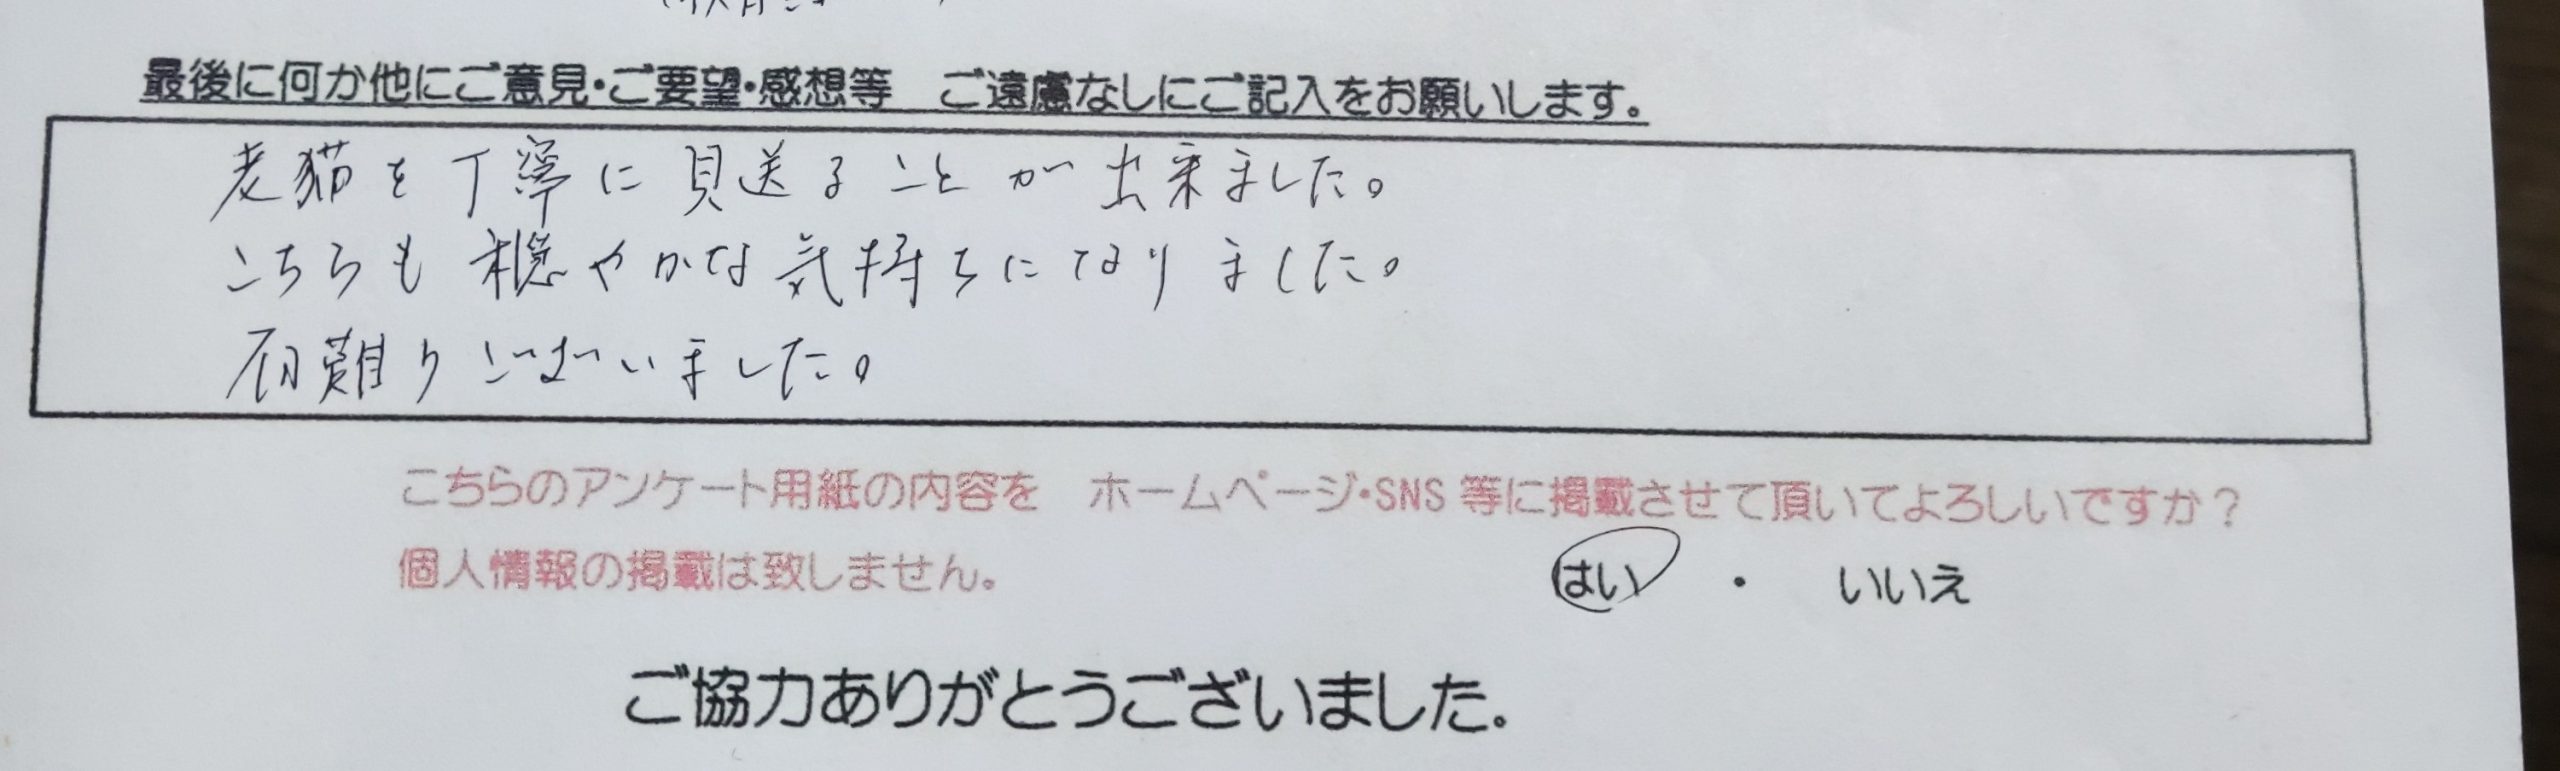 最後に何か他にご意見・ご要望・感想等　ご遠慮なしにご記入をお願いします。
老猫を丁寧に見送ることが出来ました。
こちらも穏やかな気持ちになりました。
有難うございました。
こちらのアンケート用紙の内容を　ホームページ・SNS 等に掲載させて頂いてよろしいですか？
個人情報の掲載は致しません。
はい　・　いいえ
ご協力ありがとうございました。